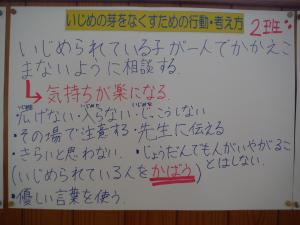 いじめの芽をなくすための行動・考え方
2班
いじめられている子が一人でかかえこ
まないように相談する。
↳気持ちが楽になる。
いじめを いじめを いじめを
・広げない・入らない・じっこうしない
・その場で注意する・先生に伝える
・きらいと思わない。・じょうだんでも人がいやがるこ
とはしない。
(いじめられている人をかばう)
・優しい言葉を使う。